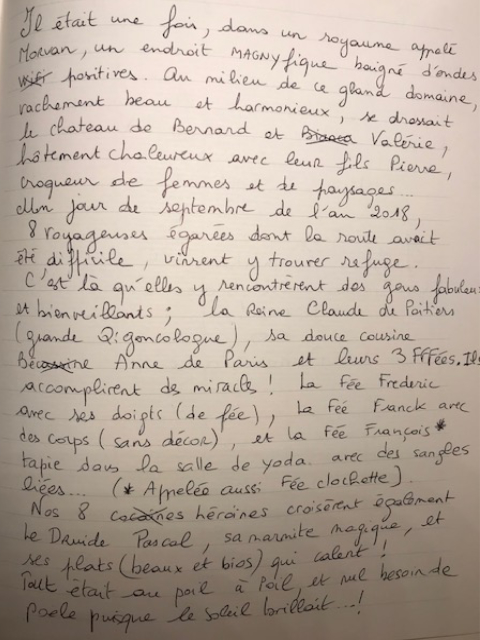 Il était une fois, dans un royaume appelé
Morvan, un endroit MAGNYfique baigné d'ondes
positives. Au milieu de ce gland domaine,
vachement beau et harmonieux, se dressait
le chateau de Bernard et Bianca Valérie,
hôtement chaleureux avec leur fils Pierre,
croqueur de femmes et de paysages...
Un jour de septembre de l'an 2018,
8 voyageuses égarées dont la route avait
été difficile, vinrent y trouver refuge.
C'est là qu'elles y rencontrèrent des gens fabuleux
et bienveillants ; la Reine Claude de Poitiers
(grande Qi goncologue), sa douce cousine
Bécassine Anne de Paris et leurs 3 FFFées. Ils
accomplirent des miracles ! La Fée Frederic
avec ses doigts (de fée), la Fée Franck avec
des corps (sans décor), et la Fée François*
tapie dans la salle de yoda. avec des sangles
liées... (* Appelée aussi Fée clochette).
Nos 8 cocaïnes héroïnes croisèrent également
le Druide Pascal, sa marmite magique, et
ses plats (beaux et bios) qui calent !
Tout était au poil à Poil, et nul besoin de
poele puisque le soleil brillait...!